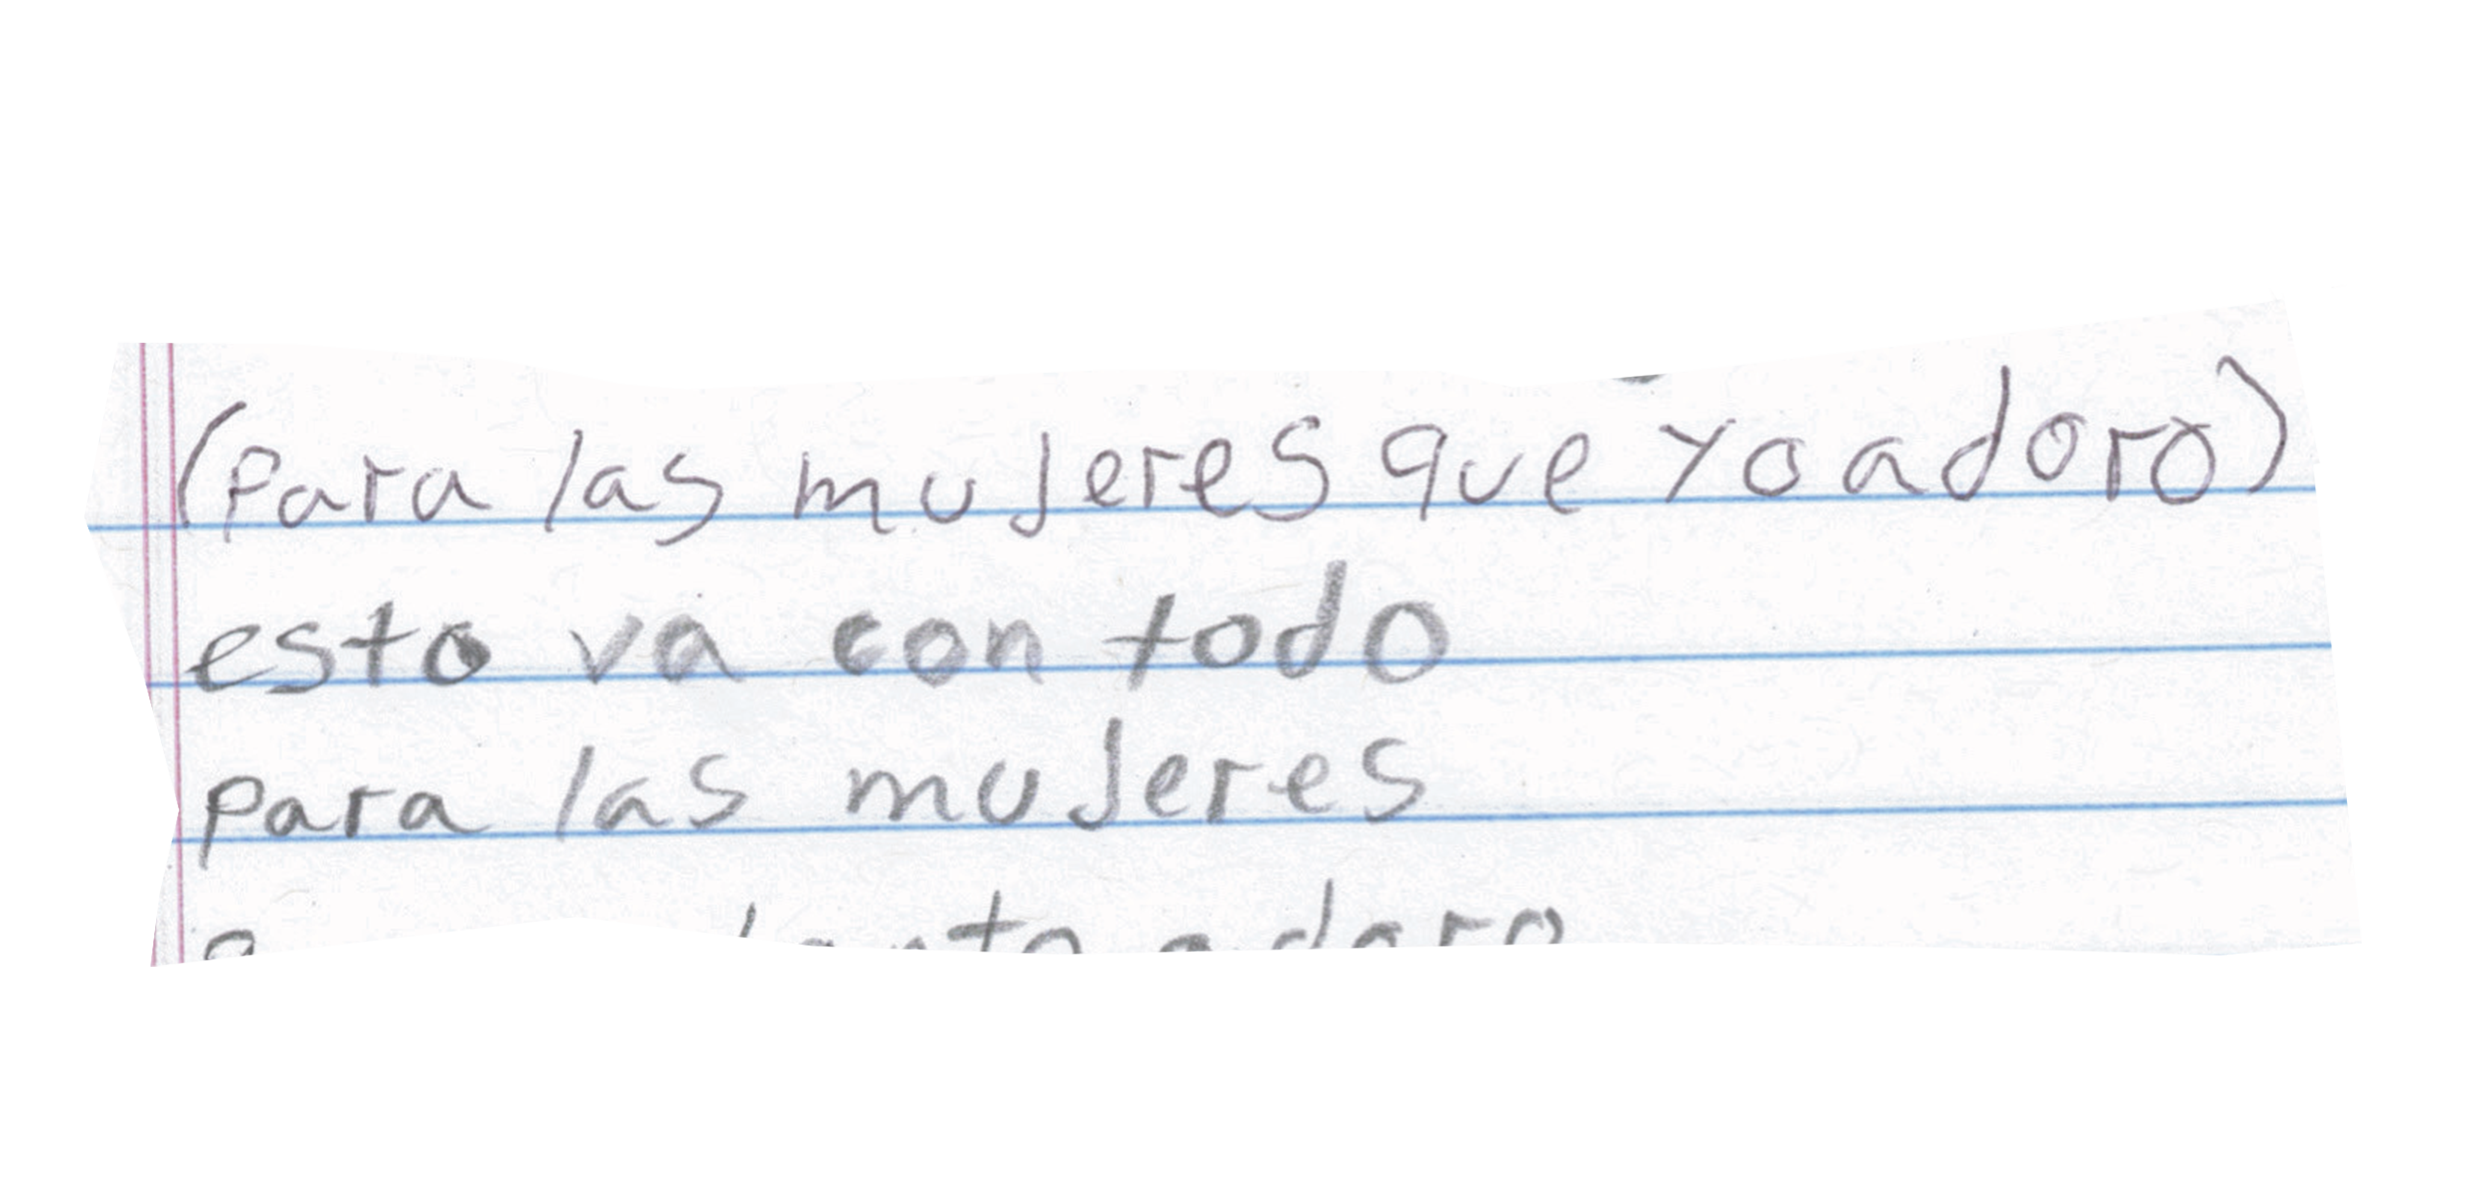 (para las mujeres que yo adoro)
esto va con todo
para las mujeres
tanto adoro